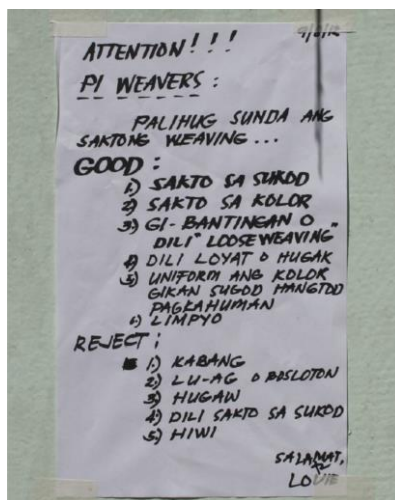 9/8/12
ATTENTION!!!
PI WEAVERS:
PALIHUG SUNDA ANG
SAKTONG WEAVING...
GOOD:
1) SAKTO SA SUKOD
2) SAKTO SA KOLOR
3) GI-BANTINGAN O
"DILI" LOOSEWEAVING"
4) DILI LOYAT O HUGAK
5) UNIFORM ANG KOLOR
GIKAN SUGOD HANGTOD
PAGKAHUMAN
6) LIMPYO
REJECT:
1) KABANG
2) LU-AG O
3) HUGAW
4) DILI SAKTO SA SUKOD
5) HIWI
SALAMAT,
LOUIE